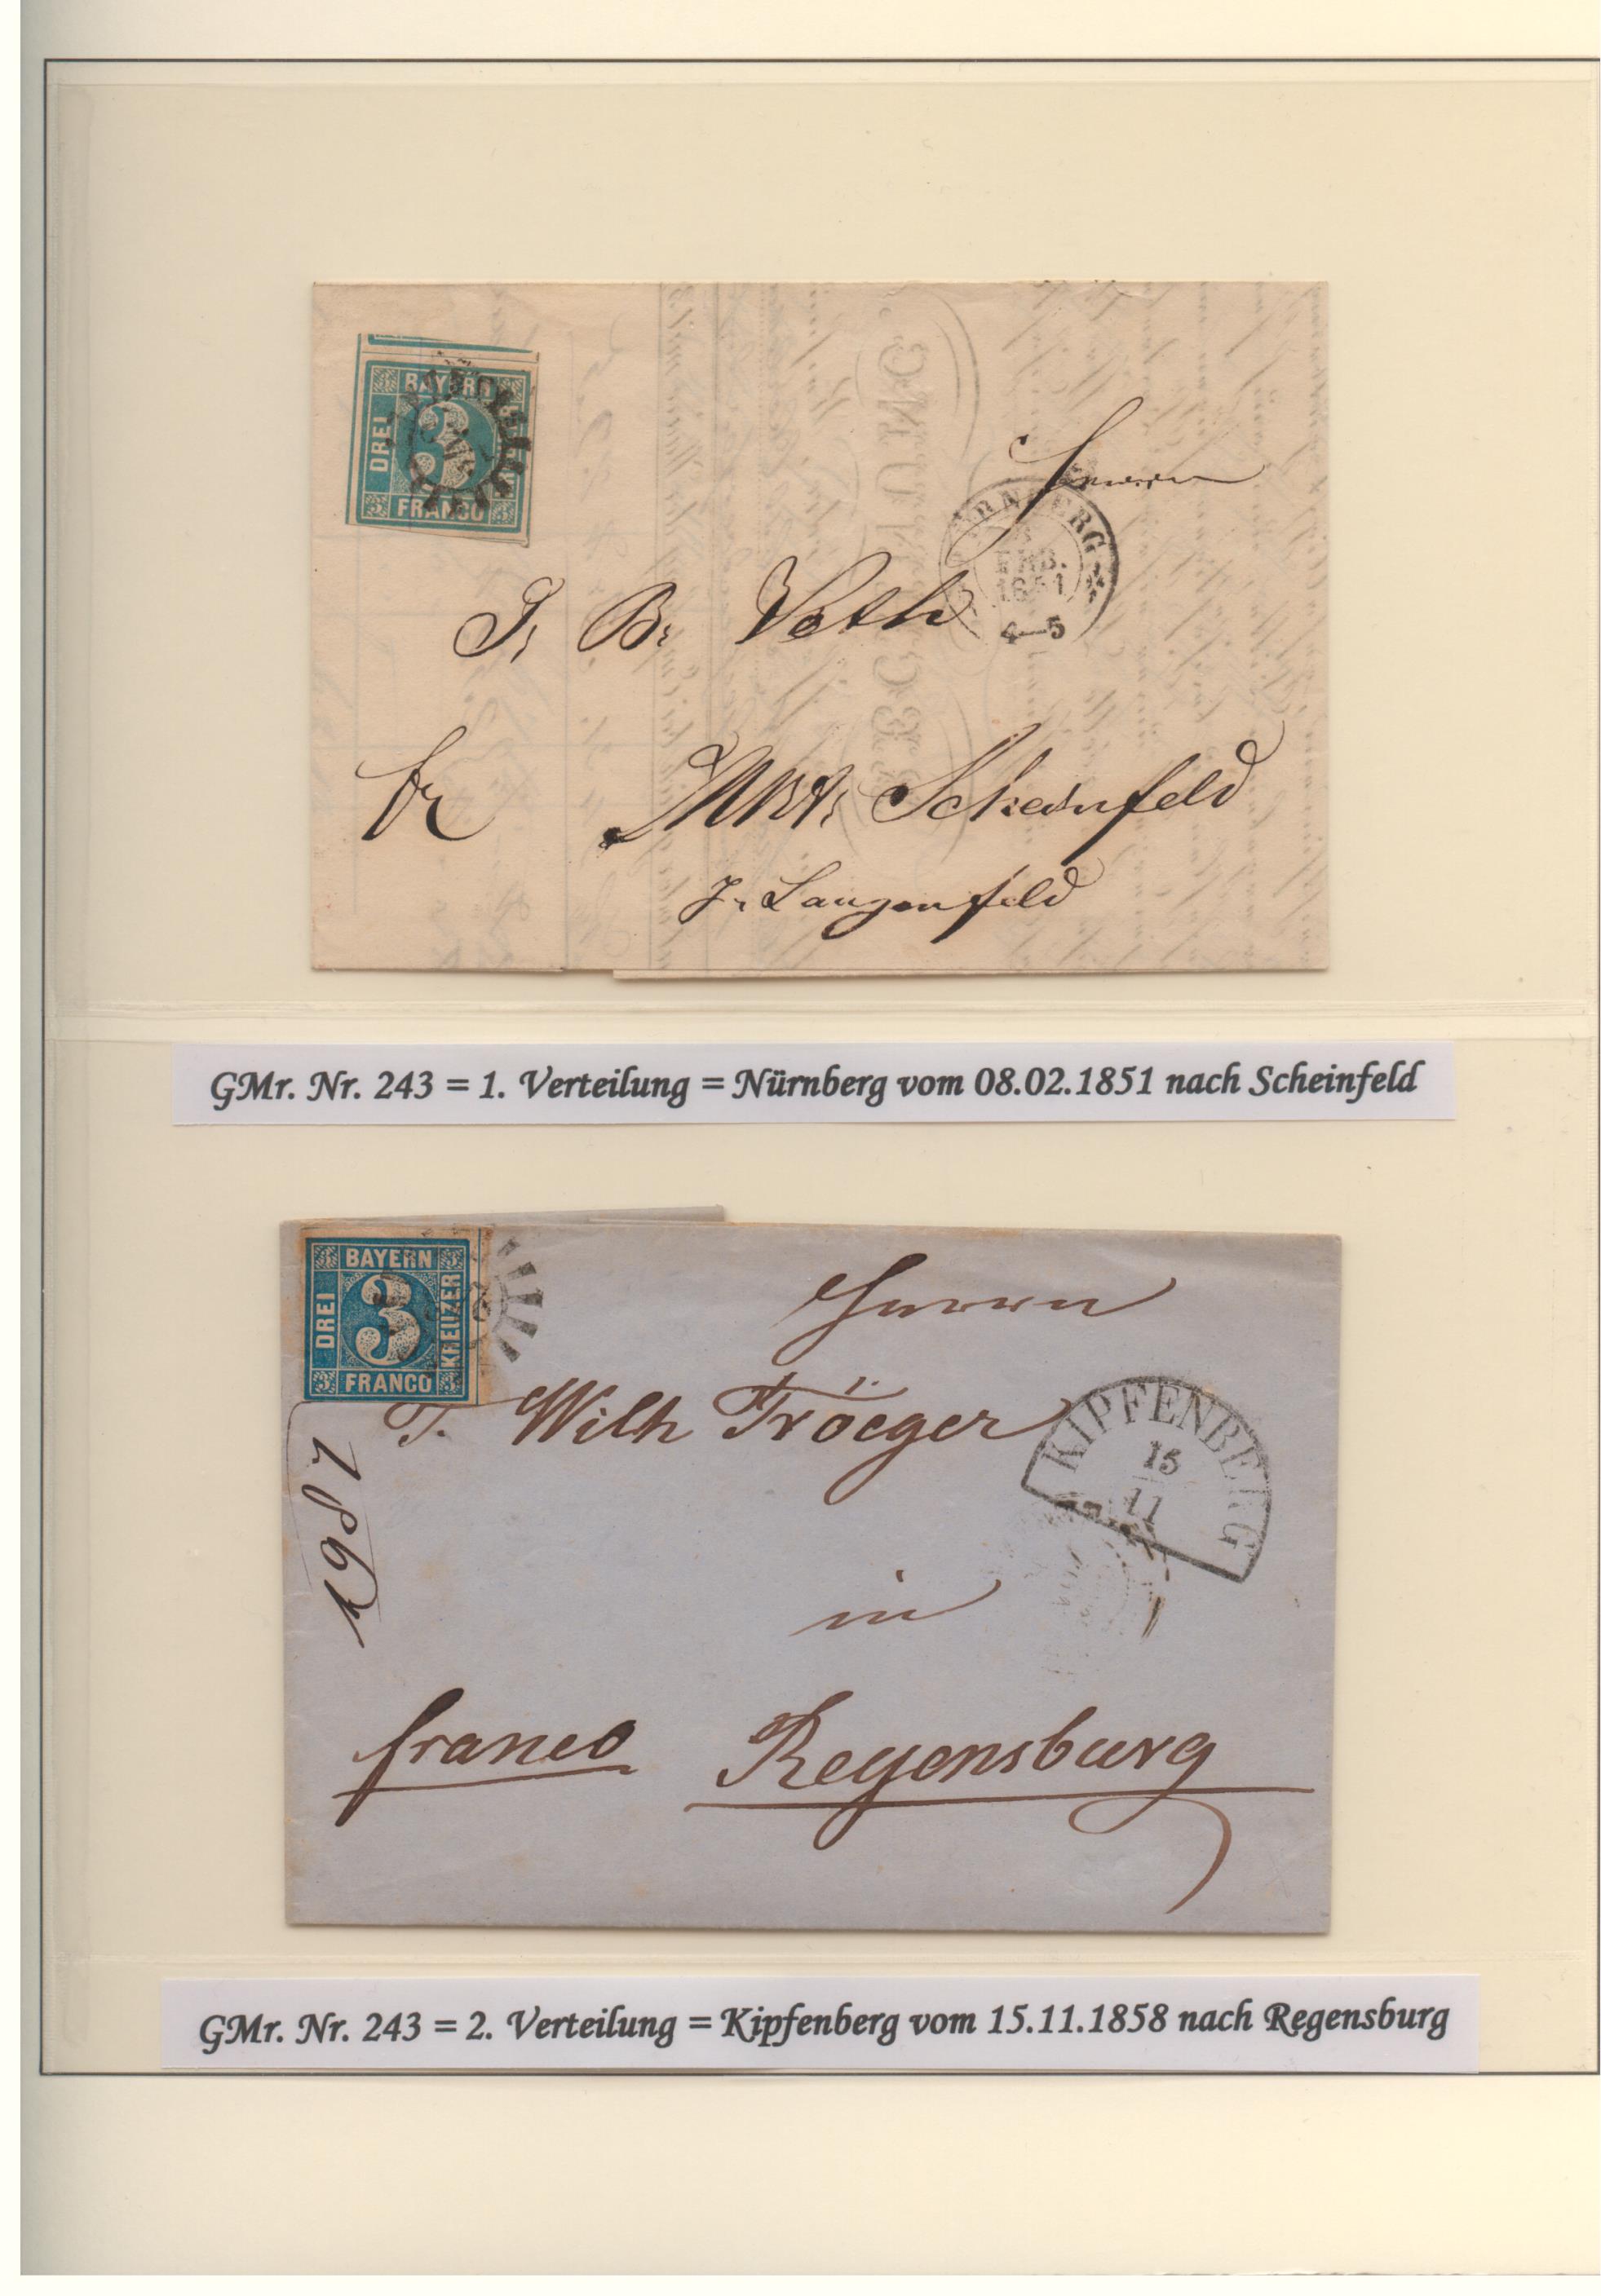 BAYERN
DREI
3
FRANCO
Herrn
NÜRNBERG
FEB.
1851
4—5
J. B. Veth
fr
Mkt. Scheinfeld
p. Langenfeld
GMr. Nr. 243 = 1. Verteilung = Nürnberg vom 08.02.1851 nach Scheinfeld
BAYERN
DREI
3
KREUZER
FRANCO
Herrn
J. Wilh Tröeger
KIPFENBERG
15
11
in
franco Regensburg
GMr. Nr. 243 = 2. Verteilung = Kipfenberg vom 15.11.1858 nach Regensburg